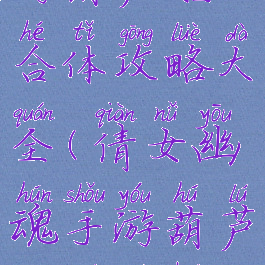 hé tǐ gōng lüè dà
合体攻略大
quán qiàn nǚ yōu
全(倩女幽
hún shǒu yóu hú lú
魂手游葫芦